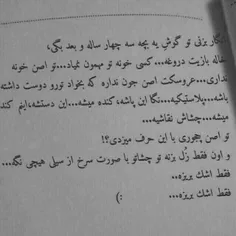 انگار بزنی تو گوش یه بچه سه چهار ساله و بعد بگی،
خاله بازیت دروغه...کسی خونه تو مهمون نمیاد...تو اصن خونه
نداری...عروسکت اصن جون نداره که بخواد تورو دوست داشته
باشه...پلاستیکیه...نگا این پاشه، کنده میشه...این دستشه،اینم کنده
میشه...چشاش نقاشیه...
تو اصن چجوری با این حرف میزدی؟!
و اون فقط زُل بزنه تو چشاتو با صورت سرخ از سیلی هیچی نگه...
فقط اشك بریزه..
فقط اشك بریزه... :)